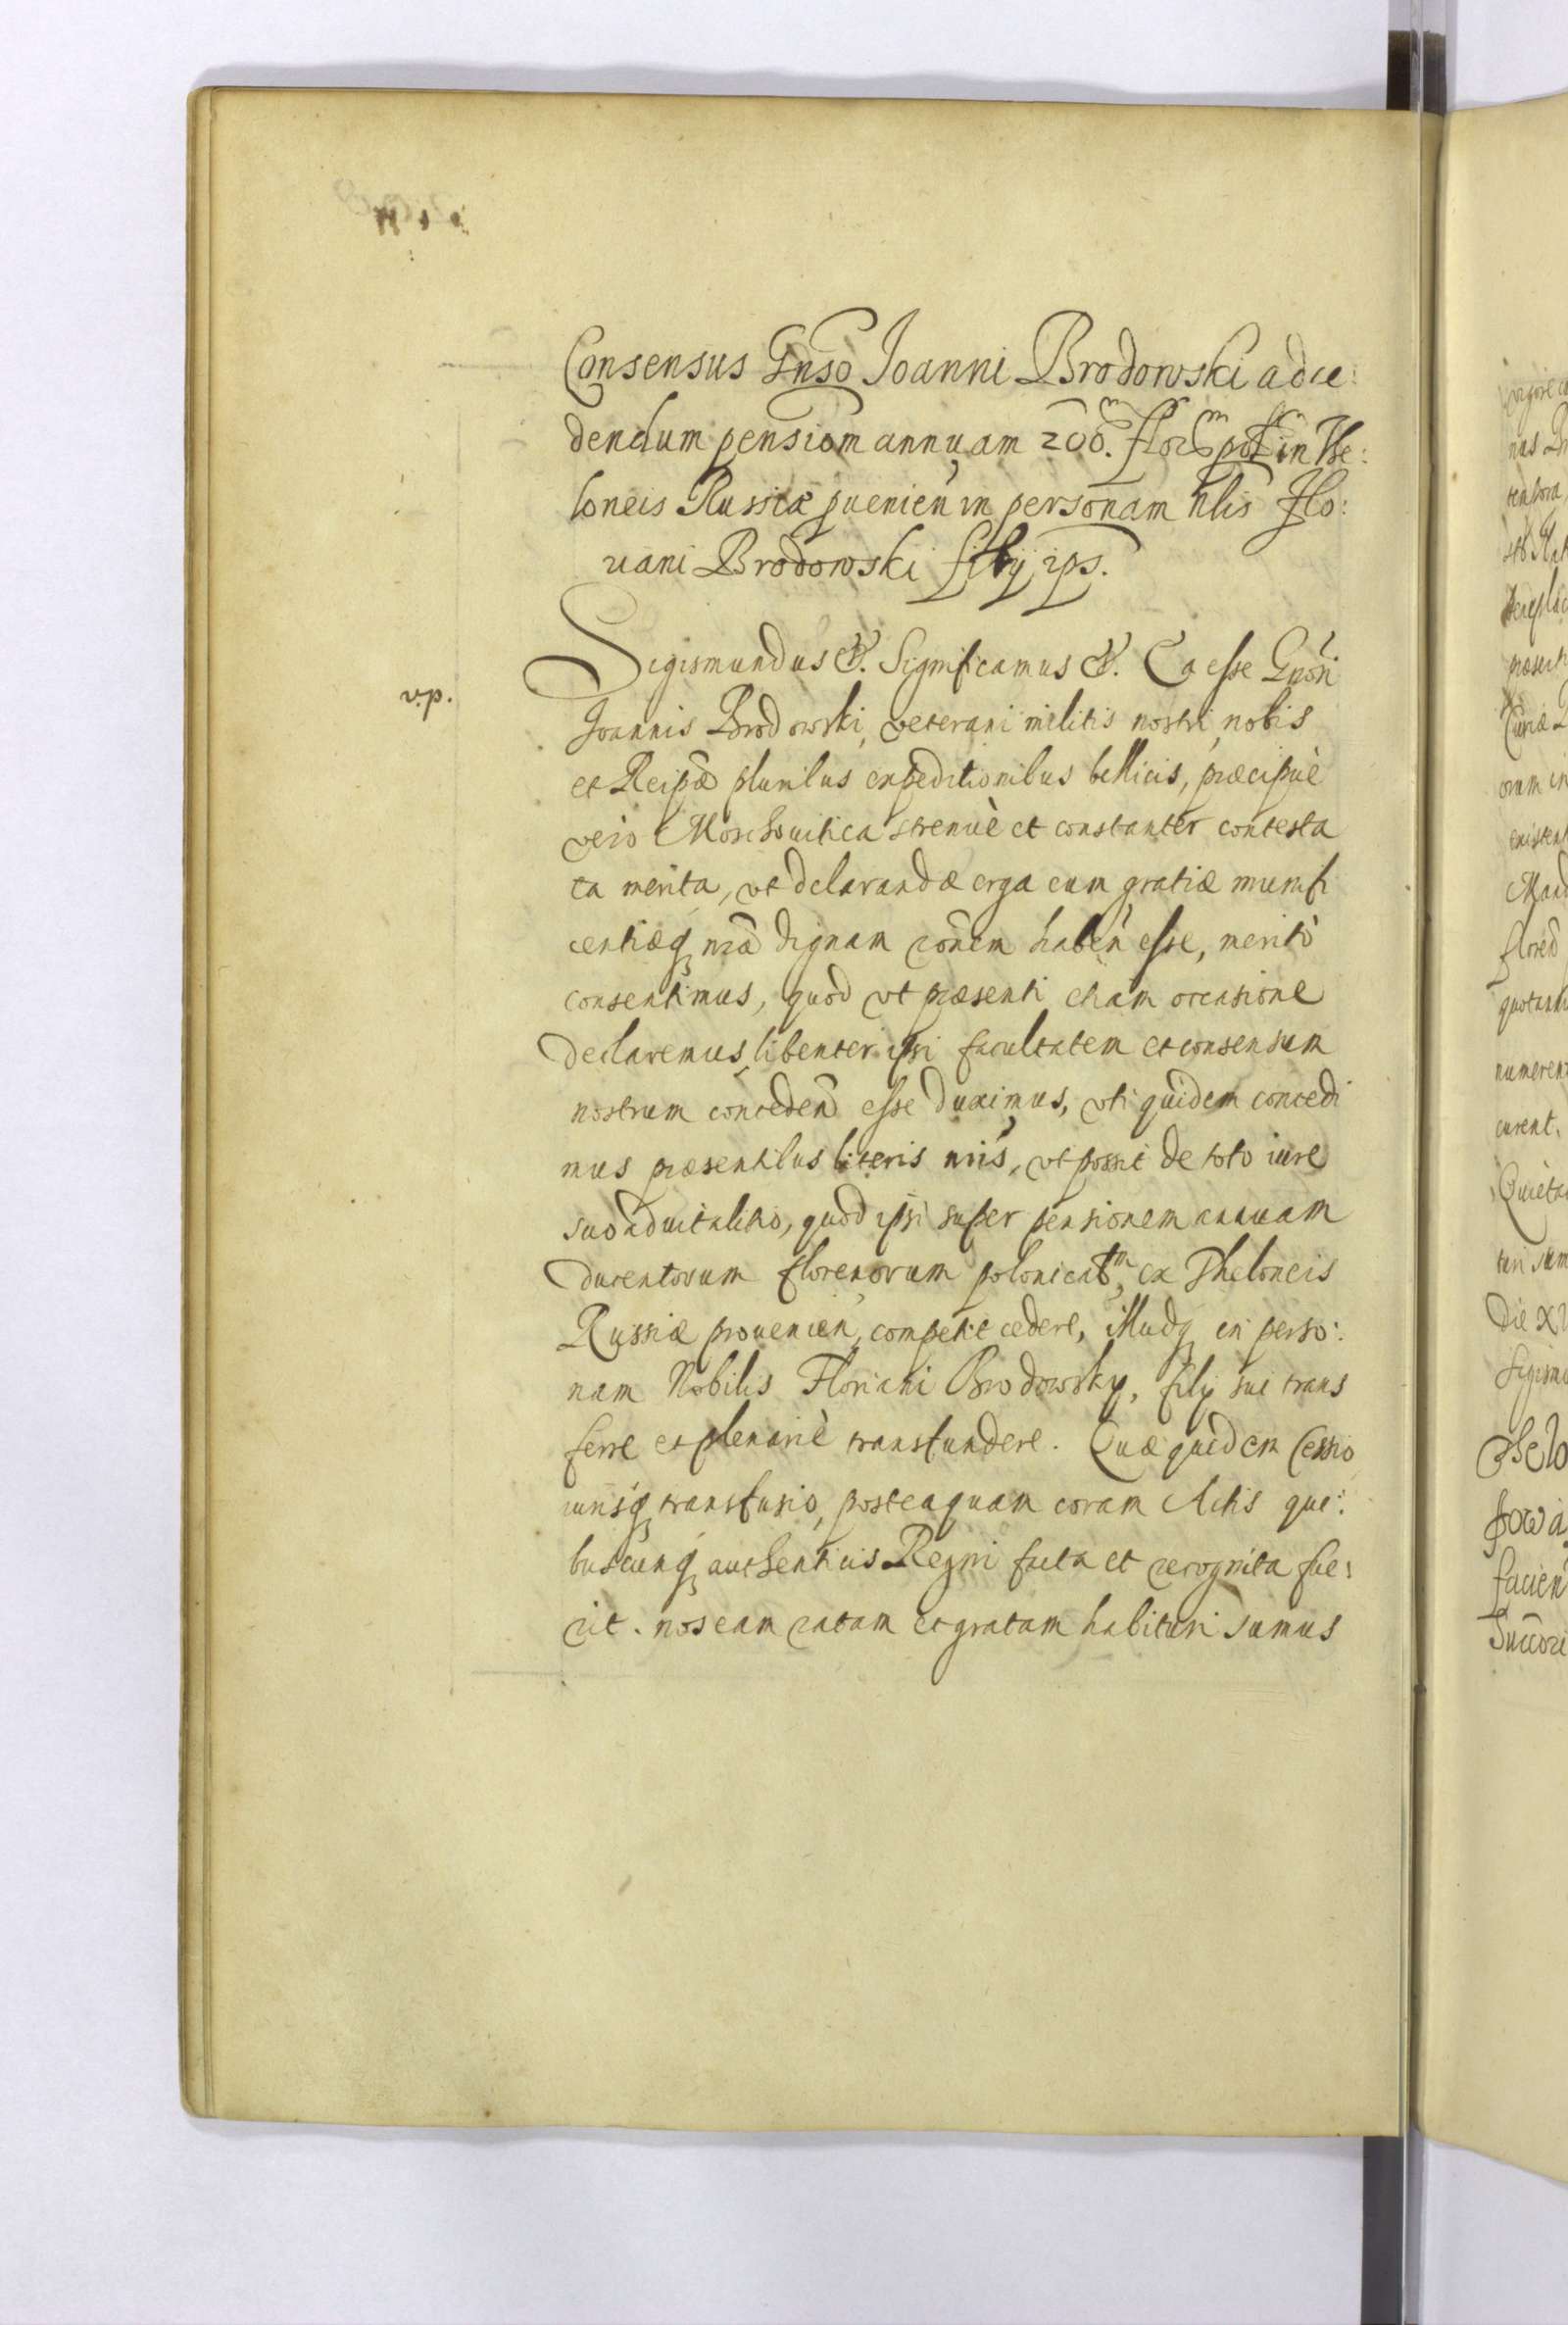 Consensus Gnso Joanni Brodowski ad ce:
dendum pensiom annuam 200. flor pol in The:
loneis Russiæ puenien in personam nlis Flo:
riani Brodowski filij ips.
Sigismundus &. Significamus &. Ea esse Gnosi
Joannis Brodowski, veterani militis nostri, nobis
et Reipæ pluribus expeditionibus bellicis, præcipuè
vero Moschouitica strenuè et constanter contesta
ta merita, vt declarandæ erga eum gratiæ munifi
centiæq nræ dignam ronem haben esse, meritò
consentimus, quod vt præsenti etiam occasione
declaremus, libenter ipsi facultatem et consensum
nostrum conceden esse duximus, vti quidem concedi
mus præsentibus literis nris, vt possit de toto iure
suo aduitalitio, quod ipsi super pensionem annuam
ducentorum florenorum polonicalm, ex Theloneis
Russiæ prouenien, competit cedere, illudq in perso:
nam Nobilis Floriani Brodowsky, filij sui trans
ferre et plenariè transfundere. Quæ quidem Cessio
iurisq transfusio, posteaquam coram Actis qui:
buscunq authenticis Regni facta et recognita fue:
rit. nos eam ratam et gratam habituri sumus